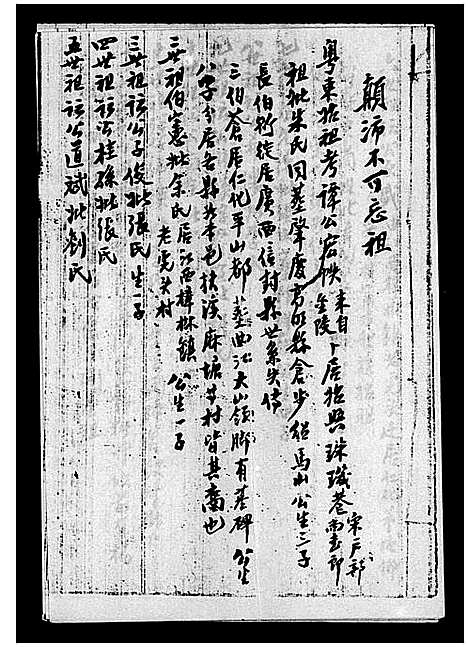 顛沛不可忘祖
粵東始祖考譚公宏帙來自金陵卜居始興珠璣巷宋戶部尚書郎
祖妣朱氏同墓肇慶高明縣倉步組馬山公生三子
長伯衍從居廣西信封縣世系失传
三伯蒼居仁化平山都墓曲江大山嶺脚有墓碑公生
八子分居各縣及本邑扶溪麻塘等村皆其裔也
二世祖伯憲妣余氏居江西樟樹鎮老虎头村公生一子
三世祖諱公子俊妣張氏生一子
四世祖諱公桂孫妣張氏
五世祖諱公道斌妣劉氏